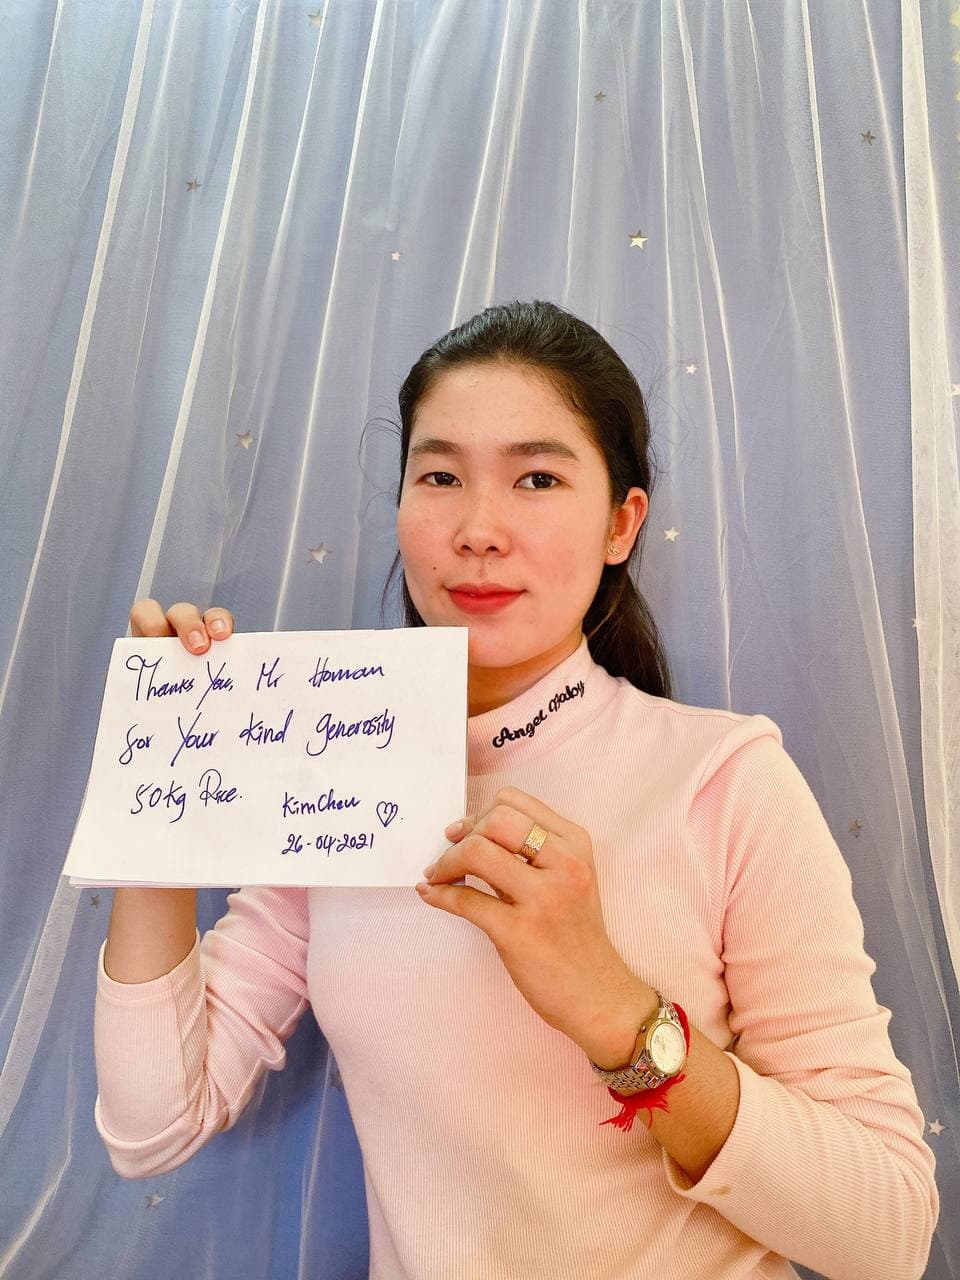 Thanks You, Mr Homan
for Your Kind generosity
50Kg Rice.
KimChou
26-04-2021
Angel Baby